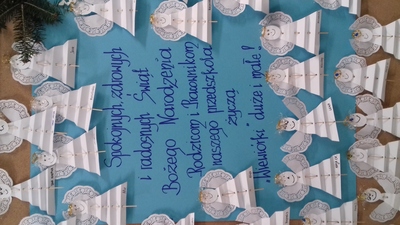 Spokojnych, zdrowych
i radosnych Świąt
Bożego Narodzenia
Rodzicom i Pracownikom
naszego przedszkola
życzą
Wiewiórki duże i małe!